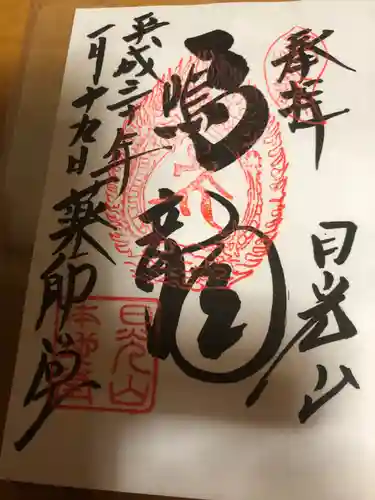 奉拝
日光山
鳴龍
平成三十年
一月十九日
薬師堂
日光山